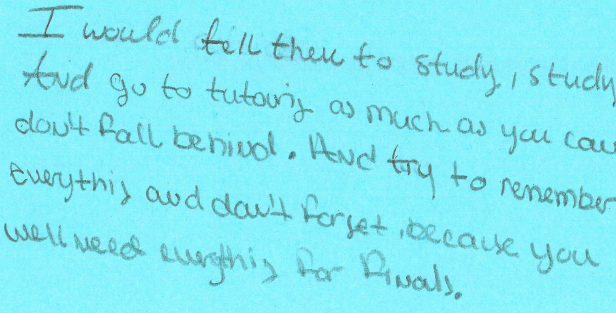 I would tell them to study, study
And go to tutoring as much as you can
don't fall behind. And try to remember
everything and don't forget, because you
well need everything for Finals.